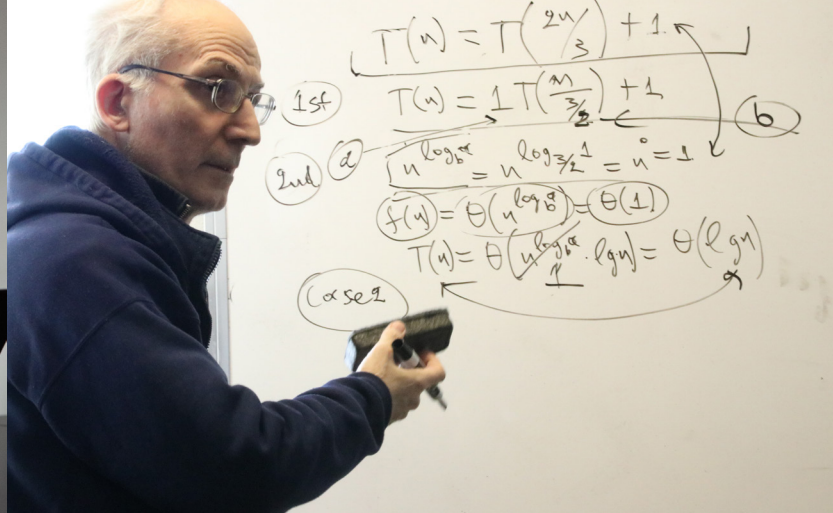 T(n) = T(2n/3) + 1
1st T(n) = 1T(n/3/2) + 1
b
2nd a n^log_b a = n^log_3/2 1 = n^0 = 1
f(n) = Θ(n^log_b a) = Θ(1)
T(n) = Θ(n^log_b a · lgn) = Θ(lgn)
1
Case 2